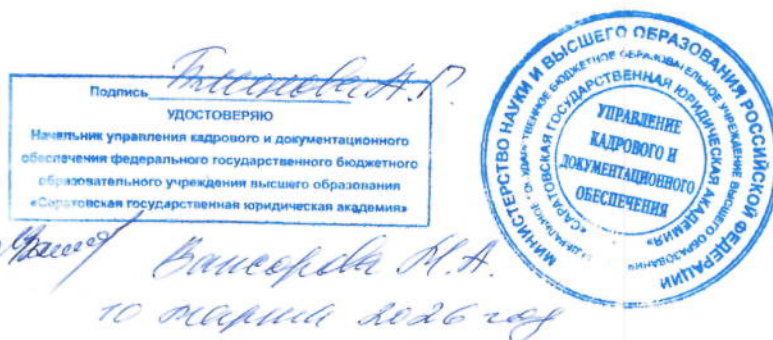 Подпись
УДОСТОВЕРЯЮ
Начальник управления кадрового и документационного
обеспечения федерального государственного бюджетного
образовательного учреждения высшего образования
«Саратовская государственная юридическая академия»
Н.А.
10 марта 2026 год
МИНИСТЕРСТВО НАУКИ И ВЫСШЕГО ОБРАЗОВАНИЯ РОССИЙСКОЙ ФЕДЕРАЦИИ
ГОСУДАРСТВЕННОЕ БЮДЖЕТНОЕ ОБРАЗОВАТЕЛЬНОЕ УЧРЕЖДЕНИЕ ВЫСШЕГО ОБРАЗОВАНИЯ
«САРАТОВСКАЯ ГОСУДАРСТВЕННАЯ ЮРИДИЧЕСКАЯ АКАДЕМИЯ»
УПРАВЛЕНИЕ
КАДРОВОГО И
ДОКУМЕНТАЦИОННОГО
ОБЕСПЕЧЕНИЯ